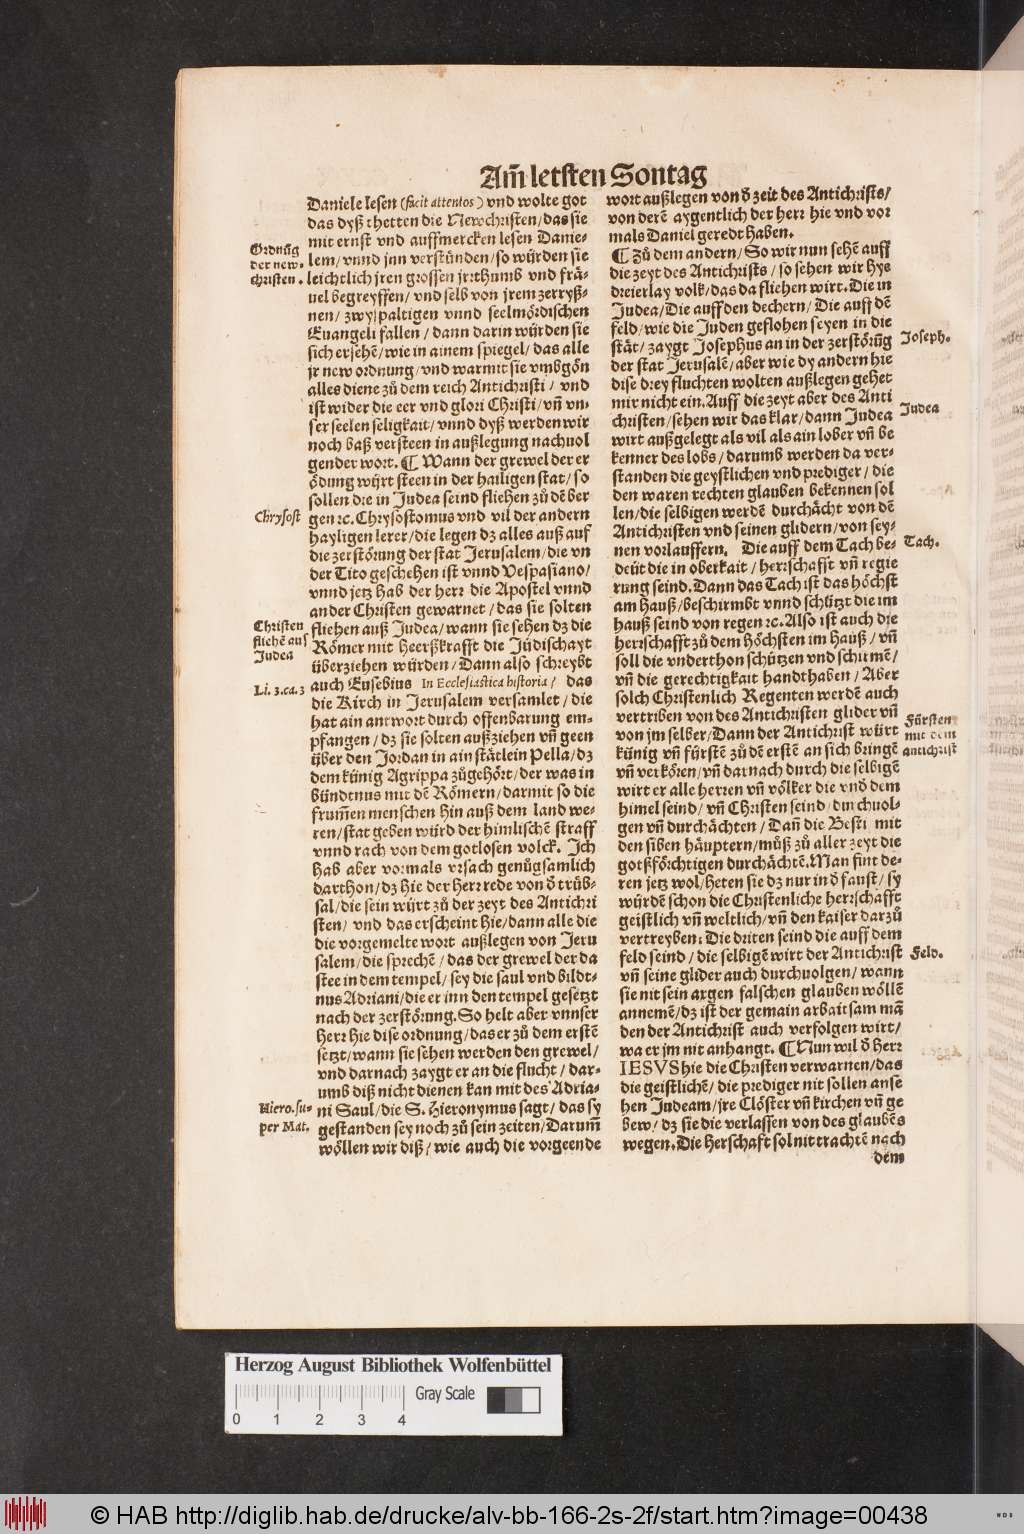 Am̃ letsten Sontag
Daniele lesen (facit attentos) vnd wolte got
das dyß thetten die Newchristen / das sie
mit ernst vnd auffmercken lesen Danie-
lem / vnnd jnn verstünden / so würden sie
leichtlich jren grossen jrrthumb vnd frä-
uel begreyffen / vnd selb von jrem zerryß-
nen / zwyspaltigen vnnd seelmördischen
Euangeli fallen / dann darin würden sie
sich ersehẽ / wie in ainem spiegel / das alle
jr new ordnung / vnd warmit sie vmbgõn
alles diene zů dem reich Antichristi / vnd
ist wider die eer vnd glori Christi / vñ vn-
ser seelen seligkait / vnnd dyß werden wir
noch baß versteen in außlegung nachuol
gender wort. ¶ Wann der grewel der er
ödung würt steen in der hailigen stat / so
sollen die in Judea seind fliehen zů dẽ ber
gen ꝛc. Chrysostomus vnd vil der andern
hayligen lerer / die legen dz alles auß auf
die zerstörung der stat Jerusalem / die vn
der Tito geschehen ist vnnd Vespasiano /
vnnd jetz hab der herr die Apostel vnnd
ander Christen gewarnet / das sie solten
fliehen auß Judea / wann sie sehen dz die
Römer mit heerßkrafft die Jüdischayt
überziehen würden / Dann also schreybt
auch Eusebius In Ecclesiastica historia / das
die Kirch in Jerusalem versamlet / die
hat ain antwort durch offenbarung em-
pfangen / dz sie solten außziehen vñ geen
über den Jordan in ain stätlein Pella / dz
dem künig Agrippa zůgehört / der was in
bündtnus mit dẽ Römern / darmit so die
frum̃en menschen hin auß dem land we-
ren / stat geben würd der himlischẽ straff
vnnd rach von dem gotlosen volck. Ich
hab aber vormals vrsach genůgsamlich
darthon / dz hie der herr rede von ð trüb-
sal / die sein würt zů der zeyt des Antichri
sten / vnd das erscheint hie / dann alle die
die vorgemelte wort außlegen von Jeru
salem / die sprechẽ / das der grewel der da
stee in dem tempel / sey die saul vnd bildt-
nus Adriani / die er inn den tempel gesetzt
nach der zerstörung. So helt aber vnnser
Herr hie dise ordnung / das er zů dem erstẽ
setzt / wann sie sehen werden den grewel /
vnd darnach zaygt er an die flucht / dar-
umb diß nicht dienen kan mit des Adria-
ni Saul / die S. Hieronymus sagt / das sy
gestanden sey noch zů sein zeiten / Darum̃
wöllen wir diß / wie auch die vorgeende
Ordnũg
der new-
christen.
Chrysost
Christen
fliehẽ aus
Judea
Li. 3. ca. 3
Hiero. su-
per Mat.
wort außlegen von ð zeit des Antichrists /
von derẽ aygentlich der herr hie vnd vor
mals Daniel geredt haben.
¶ Zů dem andern / So wir nun sehẽ auff
die zeyt des Antichrists / so sehen wir hye
dreierlay volk / das da fliehen wirt. Die in
Judea / Die auff den dechern / Die auff dẽ
feld / wie die Juden geflohen seyen in die
stät / zaygt Josephus an in der zerstörũg
der stat Jerusalẽ / aber wie dy andern hie
dise drey fluchten wolten außlegen gehet
mir nicht ein. Auff die zeyt aber des Anti
christen / sehen wir das klar / dann Judea
wirt außgelegt als vil als ain lober vñ be
kenner des lobs / darumb werden da ver-
standen die geystlichen vnd prediger / die
den waren rechten glauben bekennen sol
len / die selbigen werdẽ durchächt von dẽ
Antichristen vnd seinen glidern / von sey-
nen vorlauffern. Die auff dem Tach be-
deüt die in oberkait / herrschafft vñ regie
rung seind. Dann das Tach ist das höchst
am hauß / beschirmbt vnnd schützt die im
hauß seind von regen ꝛc. Also ist auch die
herrschafft zů dem höchsten im hauß / vñ
soll die vnderthon schützen vnd schirmẽ /
vñ die gerechtigkait handthaben / Aber
solch Christenlich Regenten werdẽ auch
vertriben von des Antichristen glider vñ
von jm selber / Dann der Antichrist würt
künig vñ fürstẽ zů dẽ erstẽ an sich bringẽ
vñ verkören / vñ darnach durch die selbigẽ
wirt er alle herren vñ völker die vnð dem
himel seind / vñ Christen seind / durchuol-
gen vñ durchächten / Dañ die Besti mit
den siben häuptern / můß zů aller zeyt die
gotßförchtigen durchächtẽ. Man fint de-
ren jetz wol / heten sie dz nur in ð faust / sy
würdẽ schon die Christenliche herrschafft
geistlich vñ weltlich / vñ den kaiser darzů
vertreyben: Die driten seind die auff dem
feld seind / die selbigẽ wirt der Antichrist
vñ seine glider auch durchuolgen / wann
sie nit sein argen falschen glauben wöllẽ
annemẽ / dz ist der gemain arbaitsam mã
den der Antichrist auch verfolgen wirt /
wa er jm nit anhangt. ¶ Nun wil ð herr
IESVS hie die Christen verwarnen / das
die geistlichẽ / die prediger nit sollen anse
hen Judeam / jre Clöster vñ kirchen vñ ge
bew / dz sie die verlassen von des glaubẽs
wegen. Die herschaft sol nit trachtẽ nach
dem
Joseph.
Judea
Tach.
Fürsten
mit dem
antichrist
Feld.
Herzog August Bibliothek Wolfenbüttel
Gray Scale
0 1 2 3 4
© HAB http://diglib.hab.de/drucke/alv-bb-166-2s-2f/start.htm?image=00438